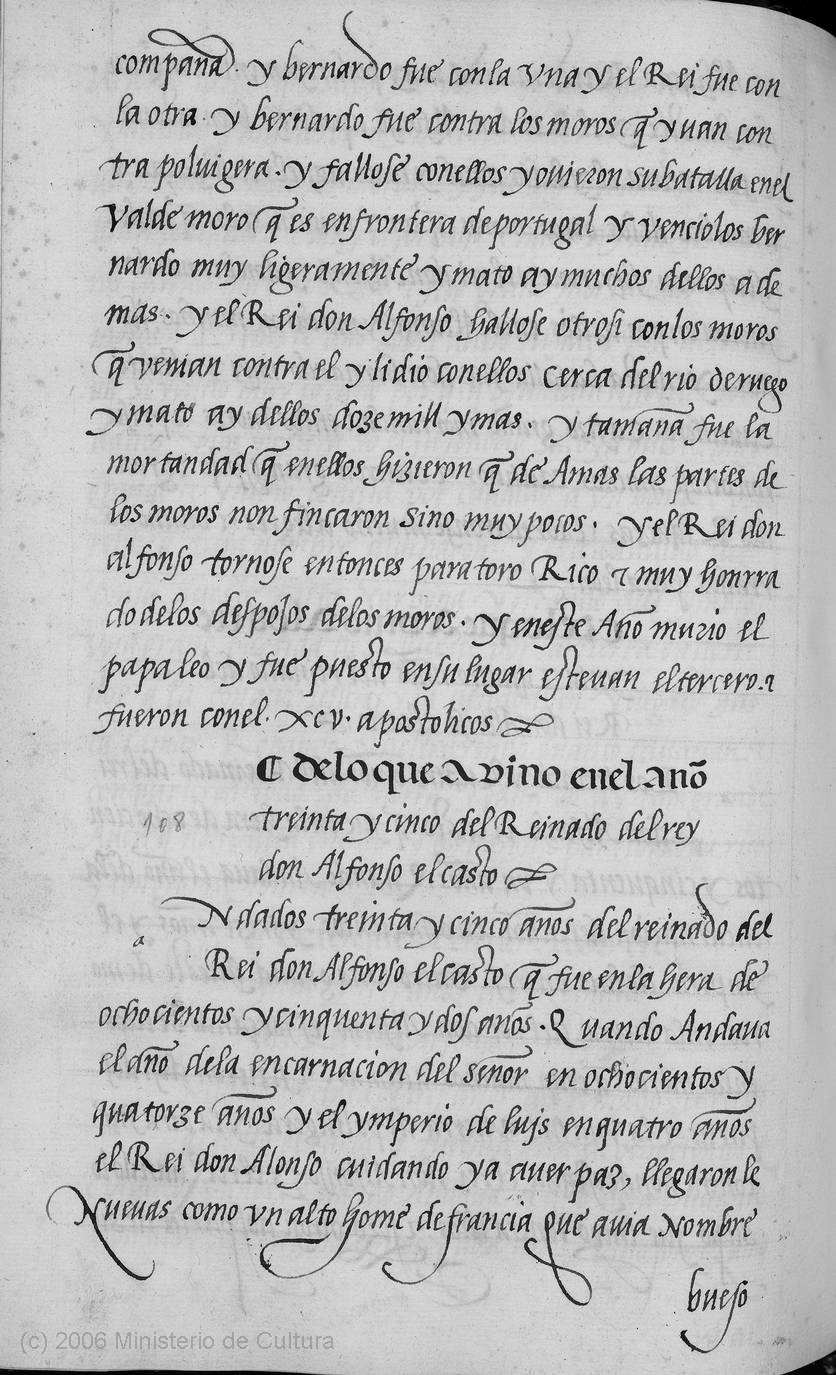 compaña. y bernardo fue conla vna y el Rei fue con
la otra. y bernardo fue contra los moros q̃ yuan con
tra poluigera. y fallose conellos y ouieron su batalla enel
Valde moro q̃ es enfrontera deportugal y venciolos ber
nardo muy ligeramente y mato ay muchos dellos a de
mas. y el Rei don Alfonso hallose otrosi conlos moros
q̃ venian contra el y lidio conellos cerca del rio deruego
y mato ay dellos doze mill y mas. y tamaña fue la
mortandad q̃ enellos hizieron q̃ de Amas las partes de
los moros non fincaron sino muy pocos. y el Rei don
alfonso tornose entonces para toro Rico ⁊ muy honrra
do delos despojos delos moros. y eneste Año murio el
papa leo y fue puesto ensu lugar esteuan el tercero. ⁊
fueron conel. xcv. apostolicos
¶ delo que Avino enel año
108
treinta y cinco del Reinado del rey
don Alfonso el casto
Ndados treinta y cinco años del reinado del
a
Rei don Alfonso el casto q̃ fue en la hera de
ochocientos y cinquenta y dos años. Quando Andaua
el año dela encarnacion del señor en ochocientos y
quatorze años y el ymperio de luis en quatro años
el Rei don Alonso cuidando ya auer paz, llegaron le
Nueuas como vn alto home de francia que auia Nombre
bueso
(c) 2006 Ministerio de Cultura